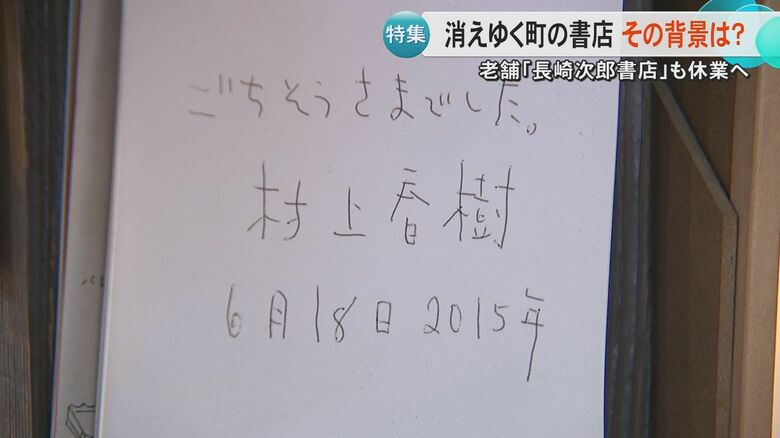 特集
消えゆく町の書店 その背景は?
老舗「長崎次郎書店」も休業へ
ごちそうさまでした。
村上春樹
6月18日 2015年